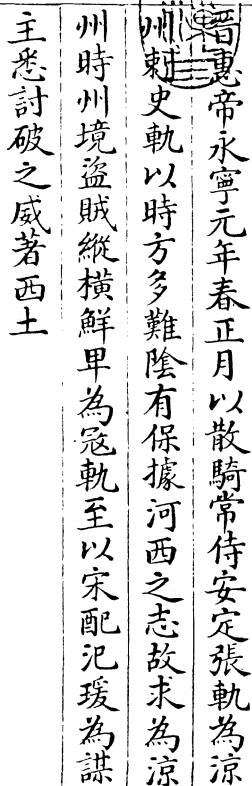 晉惠帝永寧元年春正月以散騎常侍安定張軌為涼
州刺史軌以時方多難陰有保據河西之志故求為涼
州時州境盜賊縱橫鮮卑為寇軌至以宋配氾瑗為謀
主悉討破之威著西土